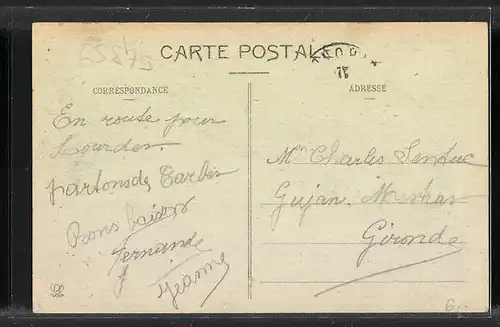 CARTE POSTALE
CORRESPONDANCE
ADRESSE
En route pour
Lourdes.
partons de Tarbes
Bons baisers
Fernande
Jeanne
Mr Charles
Gujan. Mestras
Gironde
6